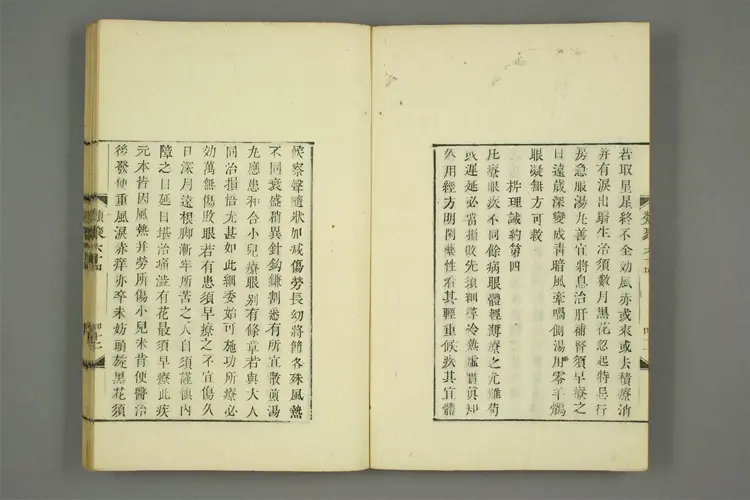 若取星星終不全効風亦或來或去積療消
并有淚出翳生治須數月黑花忽起特忌行
房急服湯丸善宜將息治肝補腎須早療之
日遠歲深變成靑暗風牽喎側湯用零羊鶻
眼凝無方可救
捋理誡約第四
此療眼疾不同餘病眼體輕薄療之尤難苟
或遲延必當損敗先須細尋冷熱虛實眞知
久用經方明閑藥性看其輕重候疾其宜體
候察聲隨狀如減傷勞長幼將節各殊風熱
不同衰盛稍異針鈎鎌割悉有所宜散煎湯
丸應患和合小兒療眼別有條章若與大人
同治損悟尤甚如此細委始可施功所療必
効萬無傷敗眼若有患須早療之不宜傷久
日深月遠根脚漸牢所苦之人自須謹愼內
障之目延日堪治痛澁有花最須早療此疾
元本皆因風熱并勞所傷小兒未肯便醫治
後發便重風淚赤痒亦卒未妨頭旋黑花須
類聚六十四